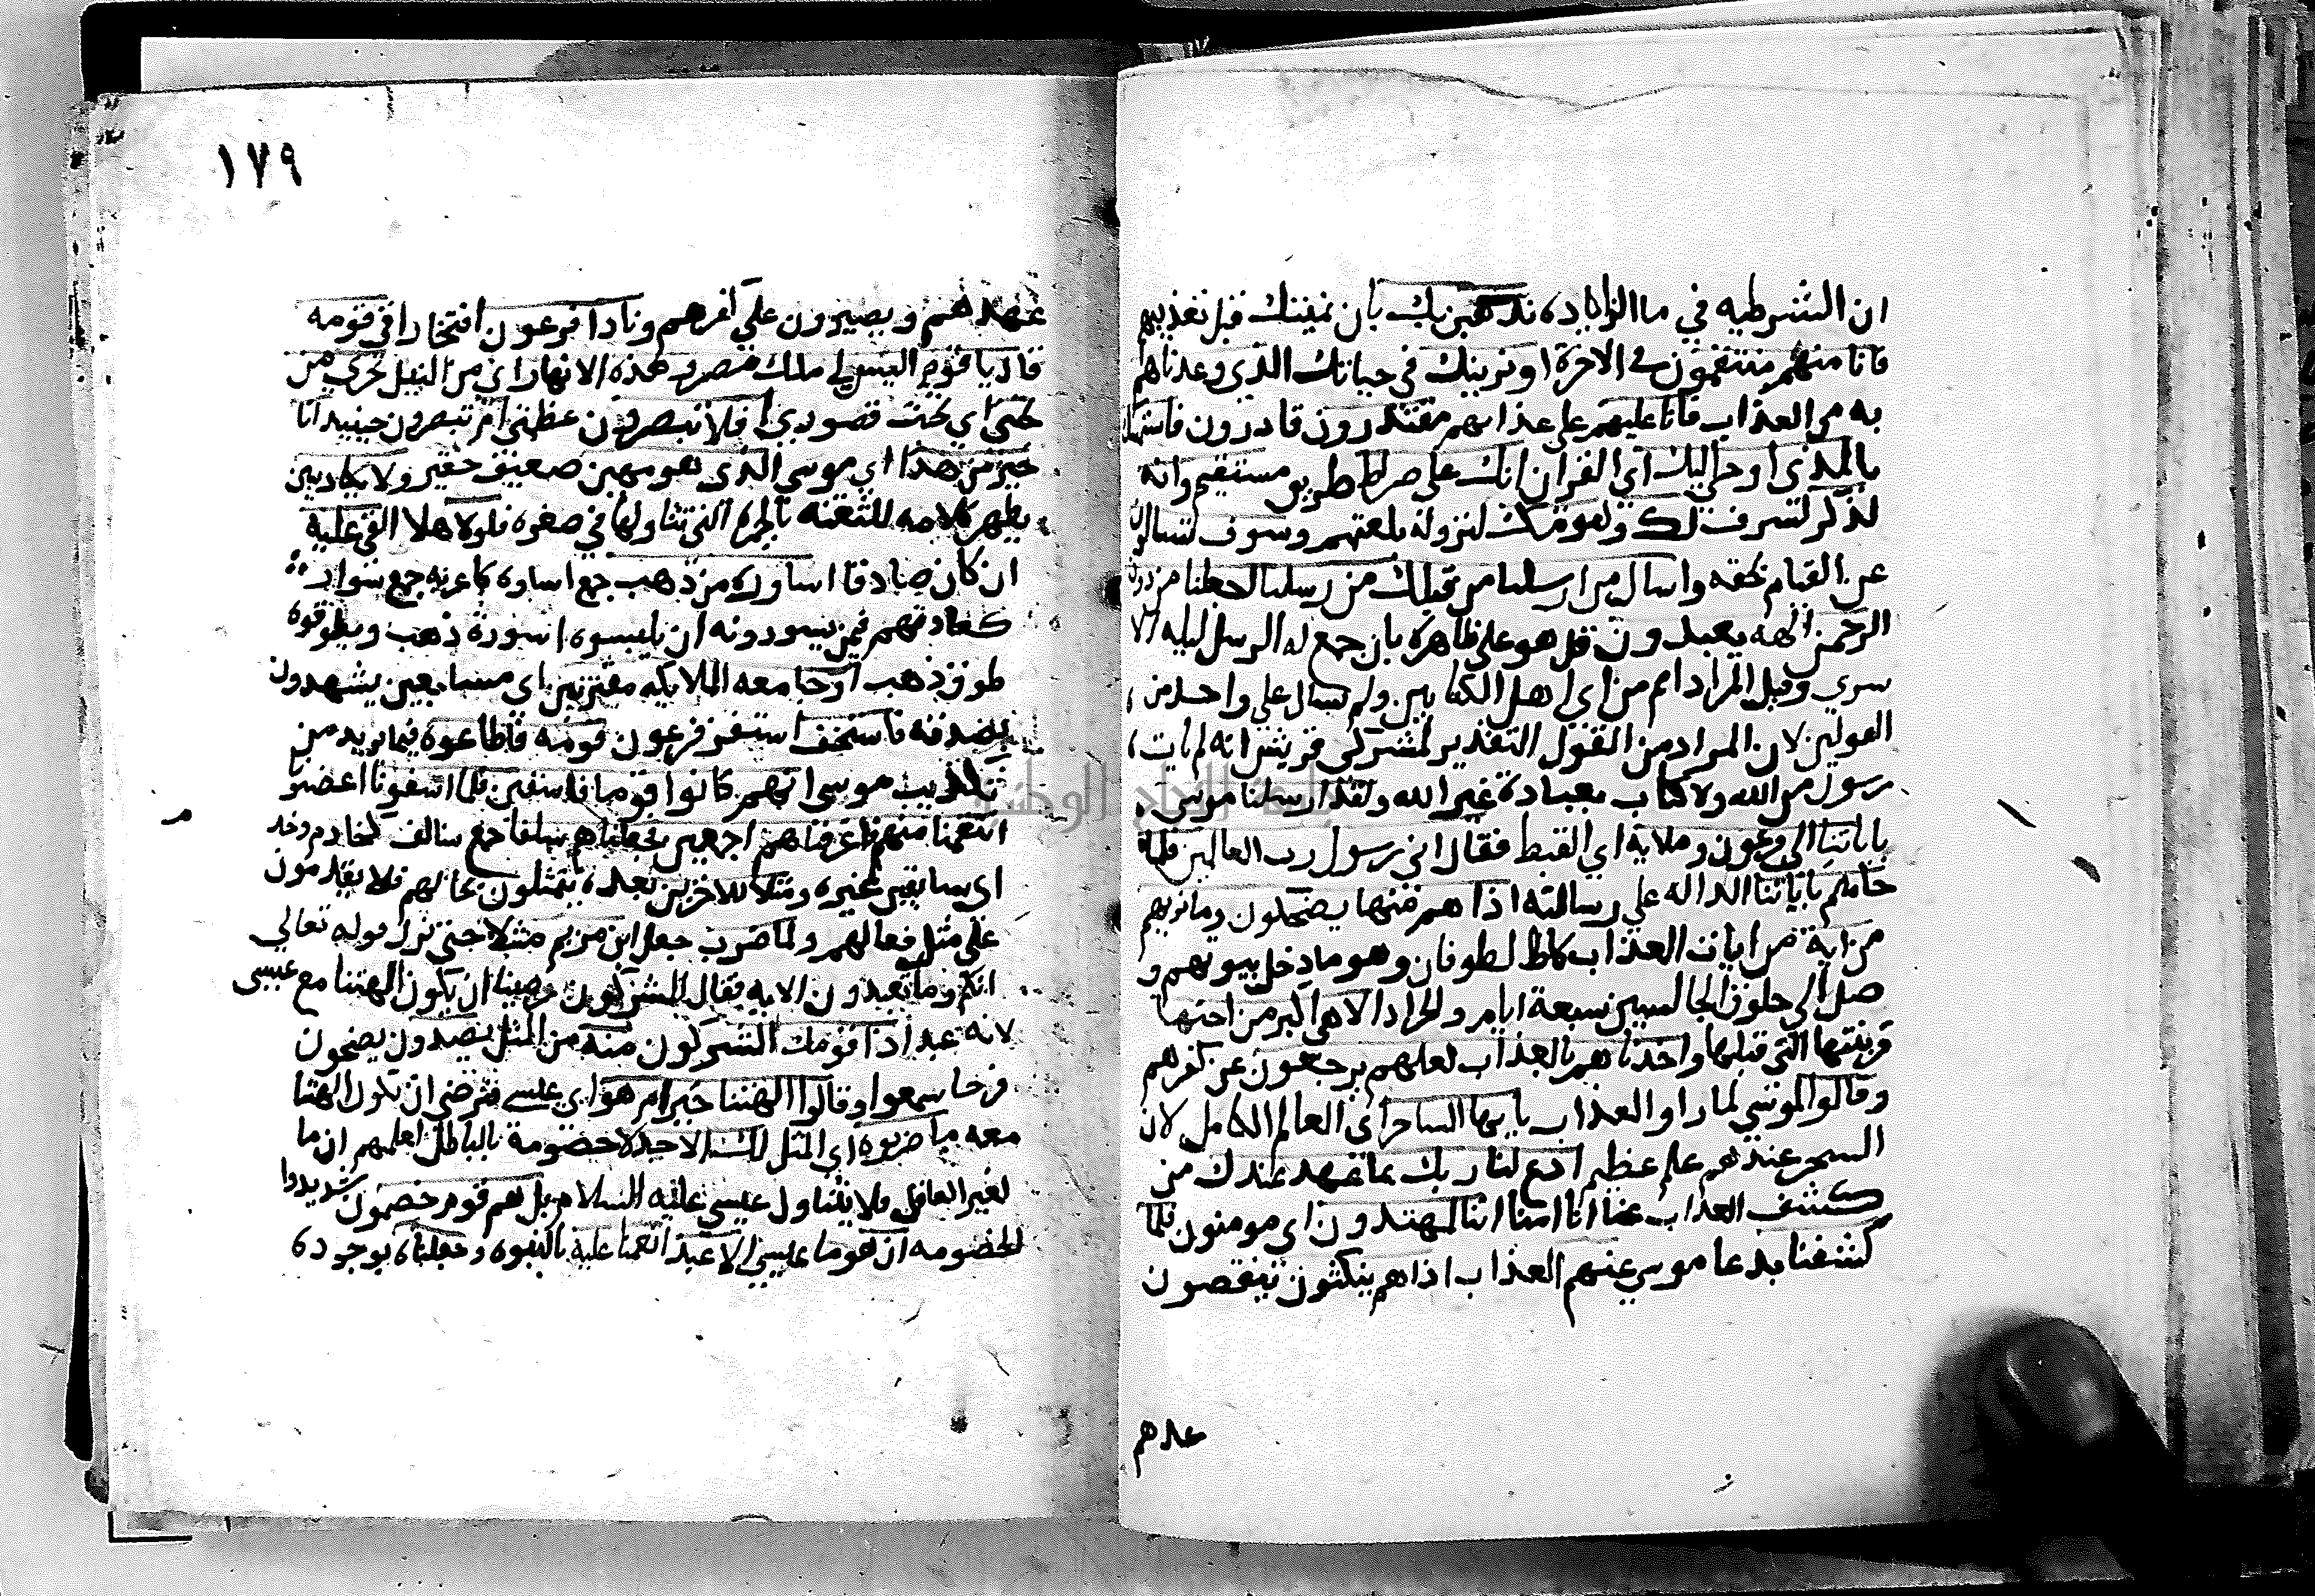 ان الشرطيه في ما الزايده نذهبن بك بان نميتنك قبل تعذيبهم
فانا منهم منتقمون في الاخرة او نرينك في حياتك الذي وعدناهم
به من العذاب فانا عليهم على عذابهم مقتدرون قادرون فاستمسك
بالذي اوحي اليك اي القران انك على صراط طريق مستقيم وانه
لذكر لشرف لك ولقومك لنزوله بلغتهم وسوف تسالون
عن القيام بحقه واسال من ارسلنا من قبلك من رسلنا اجعلنا من دون
الرحمن الهة يعبدون قيل هو على ظاهره بان جمع له الرسل ليلة الا
سري وقيل المراد امم من اي اهل الكتابين ولم يسال على واحد من
القولين لان المراد من القول التقدير لمشركي قريش انه لم يات
رسول من الله ولا كتاب بعبادة غير الله ولقد ارسلنا موسى
باياتنا الى فرعون وملايه اي القبط فقال اني رسول رب العالمين فلما
جاهم باياتنا الداله على رسالته اذا هم منها يضحكون وما نريهم
من اية من ايات العذاب كالطوفان وهو ما دخل بيوتهم و
صل الى حلوق الجالسين سبعة ايام والجراد الا هي اكبر من اختها
قرينتها التي قبلها واخذناهم بالعذاب لعلهم يرجعون عن كفرهم
وقالوا لموسى لما راو العذاب يا يها الساحر اي العالم الكامل لان
السحر عندهم علم عظيم ادع لنا ربك بما عهد عندك من
كشف العذاب عنا انا امنا اننا لمهتدون اي مومنون فلما
كشفنا بدعا موسى عنهم العذاب اذا هم ينكثون ينقصون
عهدهم
١٧٩
عهدهم ويصيرون على كفرهم ونادا فرعون افتخارا في قومه
قال يا قوم اليس لي ملك مصر وهذه الانهار اي من النيل تجري من
تحتي اي تحت قصوري افلا تبصرون عظمتي ام تبصرون حينيد انا
خير من هذا اي موسى الذي هو مهين ضعيف حقير ولا يكاد يبين
يظهر كلامه للثغته بالجمرة التي تناولها في صغره فلولا هلا القي عليه
ان كان صادقا اساورة من ذهب جمع اسورة كاغربه جمع سوار
كعادتهم فيمن يسودونه ان يلبسوه اسورة ذهب ويطوقوه
طوق ذهب او جا معه الملايكه مقترنين اي متتابعين يشهدون
بصدقه فاستخف استفز فرعون قومه فاطاعوه فيما يريد من
تكذيب موسى انهم كانوا قوما فاسقين فلما اسفونا اغضبونا
انتقمنا منهم فاغرقناهم اجمعين فجعلناهم سلفا جمع سالف كخادم وخدم
اي سابقين عبرة ومثلا للاخرين بعده يتمثلون بحالهم فلا يقدمون
على مثل فعالهم ولما ضرب جعل ابن مريم مثلا حين نزل قوله تعالي
انكم وما تعبدون الايه فقال المشركون رضينا ان يكون الهتنا مع عيسى
لانه عبد اذا قومك المشركون منه من المثل يصدون يضجون
فرحا سمعوا وقالوا الهتنا خير ام هو اي عيسى فنرضى ان تكون الهتنا
معه ما ضربوه اي المثل لك الا جدلا خصومة بالباطل لعلمهم ان ما
لغير العاقل فلا يتناول عيسى عليه السلام بل هم قوم خصمون شديدوا
الخصومه ان هو ما عيسى الا عبد انعمنا عليه بالنبوه وجعلناه بوجوده